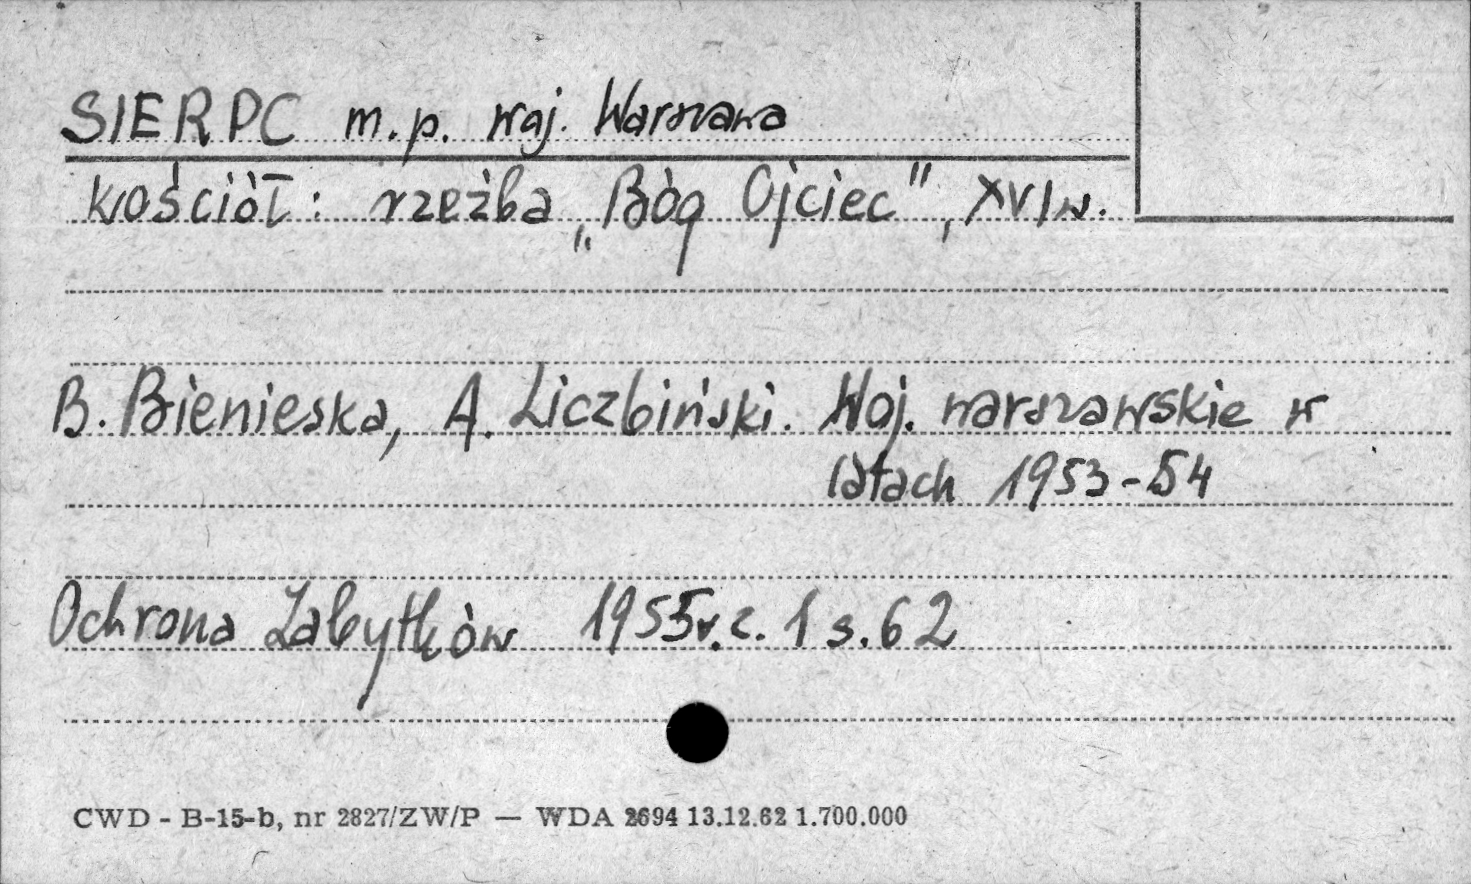 SIERPC m.p. woj. Warszawa
kościół: rzeźba „Bóg Ojciec", XVI w.
B. Bienieska, A. Liczbiński. Woj. warszawskie w
latach 1953-54
Ochrona Zabytków 1955r. z. 1 s. 62
CWD - B-15-b, nr 2827/ZW/P — WDA 2694 13.12.62 1.700.000